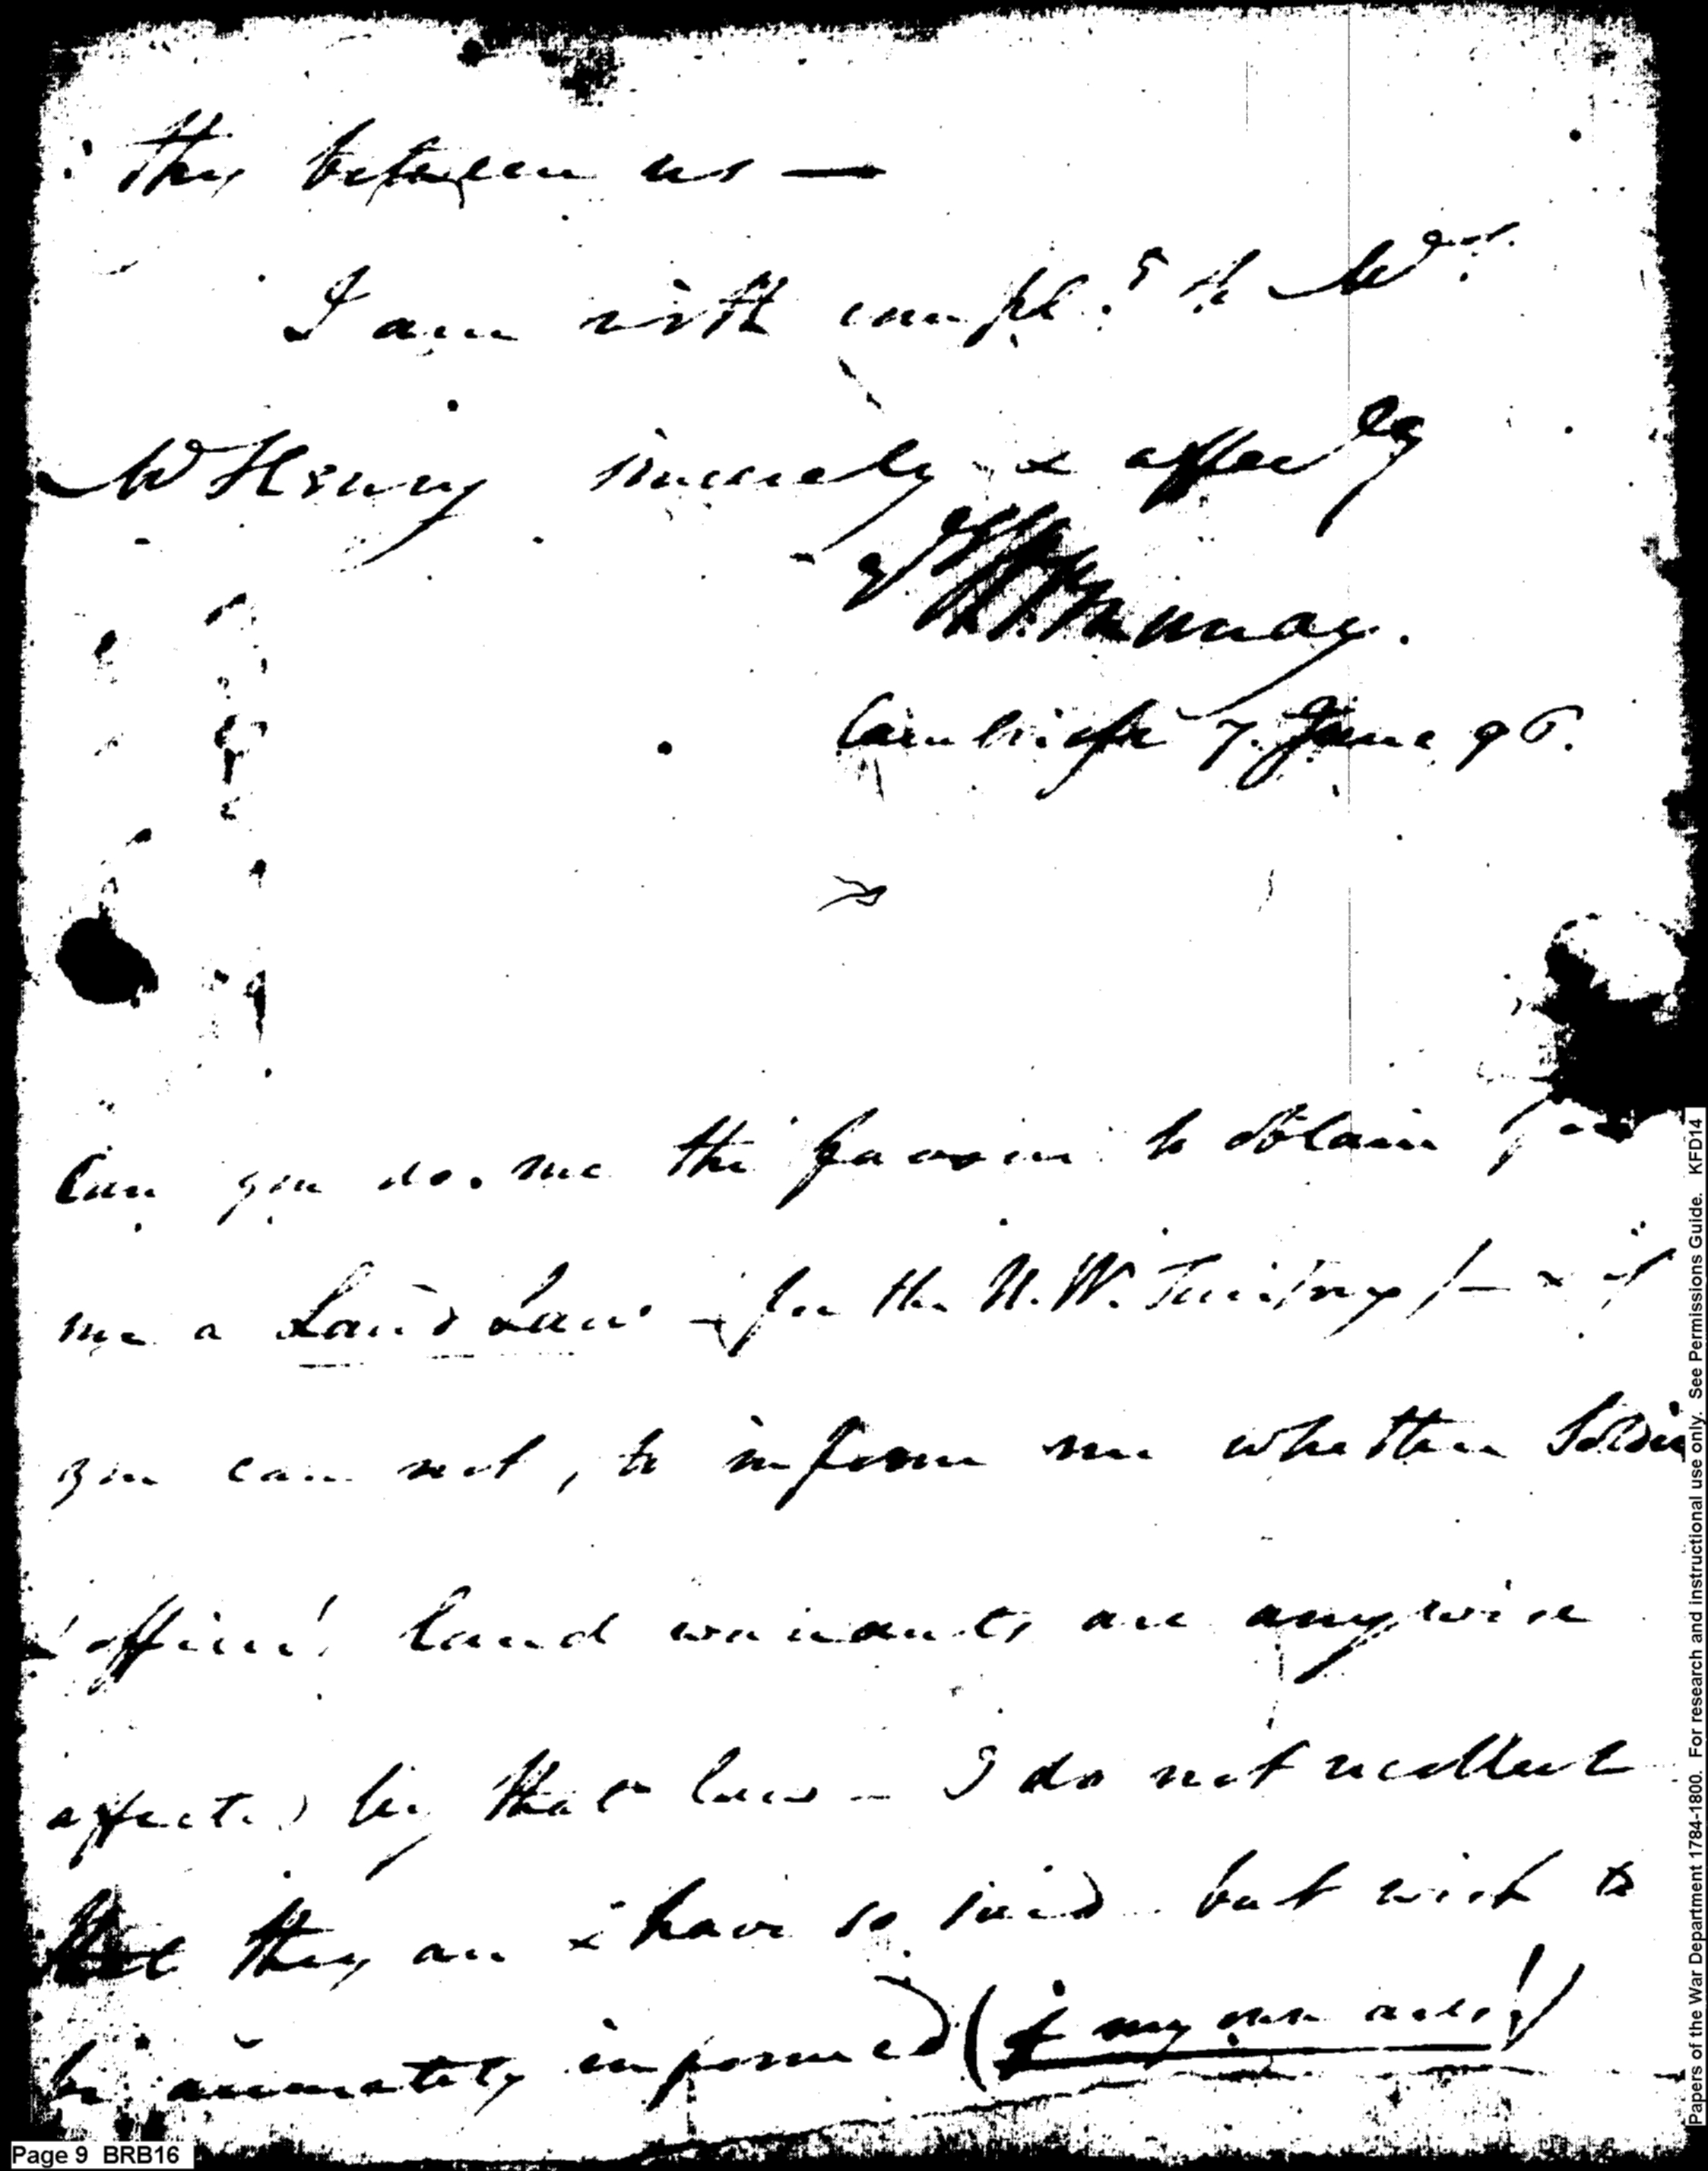 thy between us —
I am with compl.s to Mrs.
McHenry sincerely & affecly
W. V. Murray.
Cambridge 7. June 96.
Can you do me the favour to obtain for
me a Land Law – for the N. W. Territory / – & if
you can not, to inform me whether Soldier
& officers' land warrants are anywise
affected by that law – I do not recollect
that they are & have so said but wish to
be accurately informed (of my own acts!)
Page 9 BRB16
Papers of the War Department 1784-1800. For research and instructional use only. See Permissions Guide. KFD14